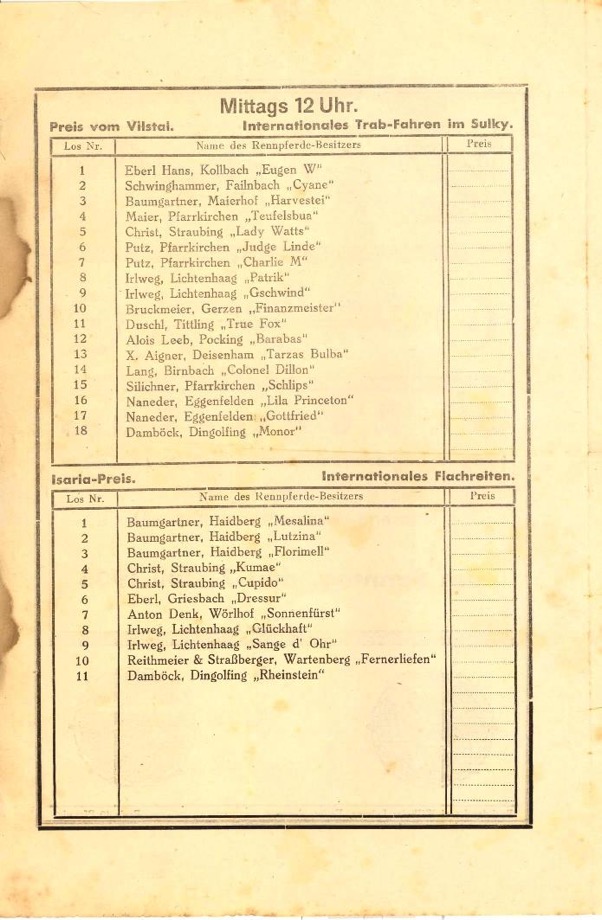 Mittags 12 Uhr.
Preis vom Vilstal. Internationales Trab-Fahren im Sulky.
Los Nr. Name des Rennpferde-Besitzers Preis
1 Eberl Hans, Kollbach „Eugen W“
2 Schwinghammer, Failnbach „Cyane“
3 Baumgartner, Maierhof „Harvestei“
4 Maier, Pfarrkirchen „Teufelsbua“
5 Christ, Straubing „Lady Watts“
6 Putz, Pfarrkirchen „Judge Linde“
7 Putz, Pfarrkirchen „Charlie M“
8 Irlweg, Lichtenhaag „Patrik“
9 Irlweg, Lichtenhaag „Gschwind“
10 Bruckmeier, Gerzen „Finanzmeister“
11 Duschl, Tittling „True Fox“
12 Alois Leeb, Pocking „Barabas“
13 X. Aigner, Deisenham „Tarzas Bulba“
14 Lang, Birnbach „Colonel Dillon“
15 Silichner, Pfarrkirchen „Schlips“
16 Naneder, Eggenfelden „Lila Princeton“
17 Naneder, Eggenfelden „Gottfried“
18 Damböck, Dingolfing „Monor“
Isaria-Preis. Internationales Flachreiten.
Los Nr. Name des Rennpferde-Besitzers Preis
1 Baumgartner, Haidberg „Mesalina“
2 Baumgartner, Haidberg „Lutzina“
3 Baumgartner, Haidberg „Florimell“
4 Christ, Straubing „Kumae“
5 Christ, Straubing „Cupido“
6 Eberl, Griesbach „Dressur“
7 Anton Denk, Wörlhof „Sonnenfürst“
8 Irlweg, Lichtenhaag „Glückhaft“
9 Irlweg, Lichtenhaag „Sange d' Ohr“
10 Reithmeier & Straßberger, Wartenberg „Fernerliefen“
11 Damböck, Dingolfing „Rheinstein“